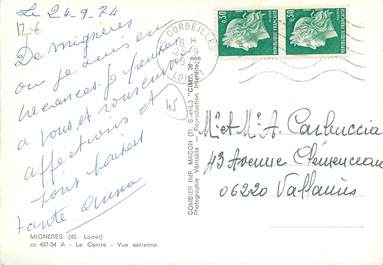 Le 24-9-74
12€
De Mignères
où je suis en
vacances je pense
à vous et vous envoie
affections et
bons baisers
tante
45
CORBEILLES
18 H
LOIRET
0,30
REPUBLIQUE FRANÇAISE
0,30
REPUBLIQUE FRANÇAISE
COMBIER IMP. MACON (71. S.-et-L.) "CIM"
Photographie Véritable - Reproduction Interdite
Mr et Mme A. Carbuccia
43 Avenue Clémenceau
06220 Vallauris
MIGNERES (45. Loiret)
cc 457-34 A - Le Centre - Vue aérienne.